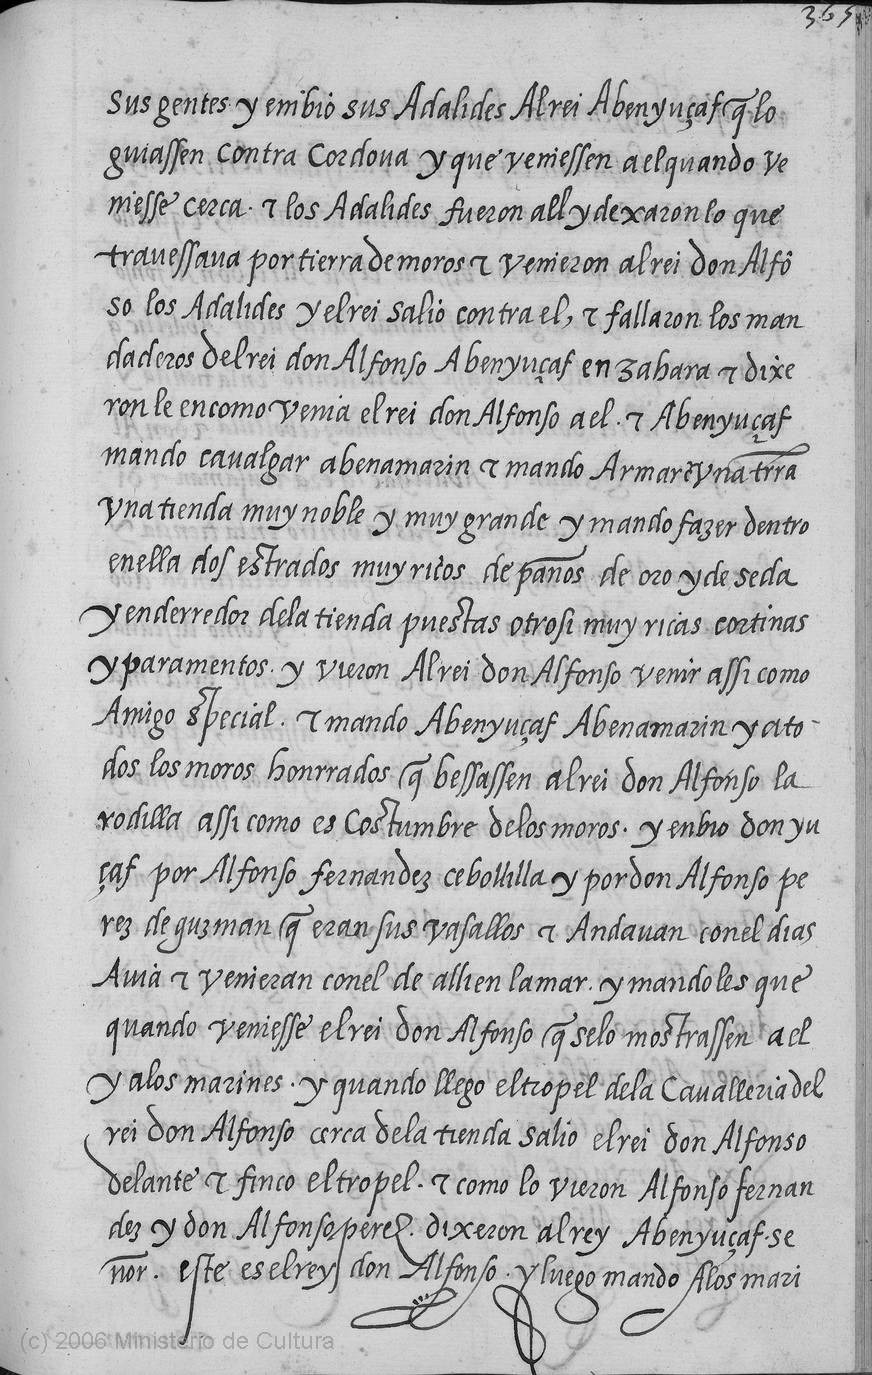 365
sus gentes y enbio sus Adalides Al rei Abenyuçaf q̃ lo
guiassen contra Cordoua y que veniessen a el quando ve
niesse cerca. τ los Adalides fueron all y dexaron lo que
trauessaua por tierra de moros τ venieron al rei don Alfõ
so los Adalides y el rei salio contra el, τ fallaron los man
daderos del rei don Alfonso Abenyuçaf en zahara τ dixe
ron le en como venia el rei don Alfonso a el. τ Abenyuçaf
mando caualgar abenamarin τ mando Armar vna trra
vna tienda muy noble y muy grande y mando fazer dentro
en ella dos estrados muy ricos de panos de oro y de seda
y enderredor de la tienda puestas otrosi muy ricas cortinas
y paramentos. y vieron Al rei don Alfonso venir assi como
Amigo special. τ mando Abenyuçaf Abenamarin y a to-
dos los moros honrrados q̃ bessassen al rei don Alfonso la
rodilla assi como es Costumbre de los moros. y enbio don yu
çaf por Alfonso fernandez cebollilla y por don Alfonso pe
rez de guzman q̃ eran sus vasallos τ Andauan con el dias
Auia τ venieran con el de allien la mar. y mandoles que
quando veniesse el rei don Alfonso q̃ se lo mostrassen a el
y a los marines. y quando llego el tropel de la Caualleria del
rei don Alfonso cerca de la tienda salio el rei don Alfonso
delante τ finco el tropel. τ como lo vieron Alfonso fernan
dez y don Alfonso perez. dixeron al rey Abenyuçaf. se
nor. este es el rey don Alfonso. y luego mando Alos mari
(c) 2006 Ministerio de Cultura